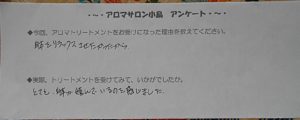 ・～・ アロマサロン小品 アンケート ・～・
◆今回、アロマトリートメントをお受けになった理由を教えてください。
体をリラックスさせたかったから
◆実際、トリートメントを受けてみて、いかがでしたか。
とても、体が緩んでいるのを感じました。